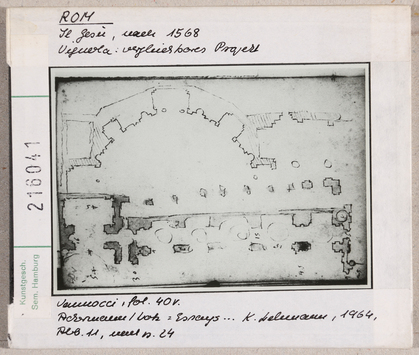 ROM
Il Gesù, nach 1568
Vignola: vergleichbares Projekt
216041
Kunstgesch.
Sem. Hamburg
Vannocci, fol. 40v.
Ackermann/Lotz = Essays... K. Lehmann, 1964,
Abb. 11, nach p. 24